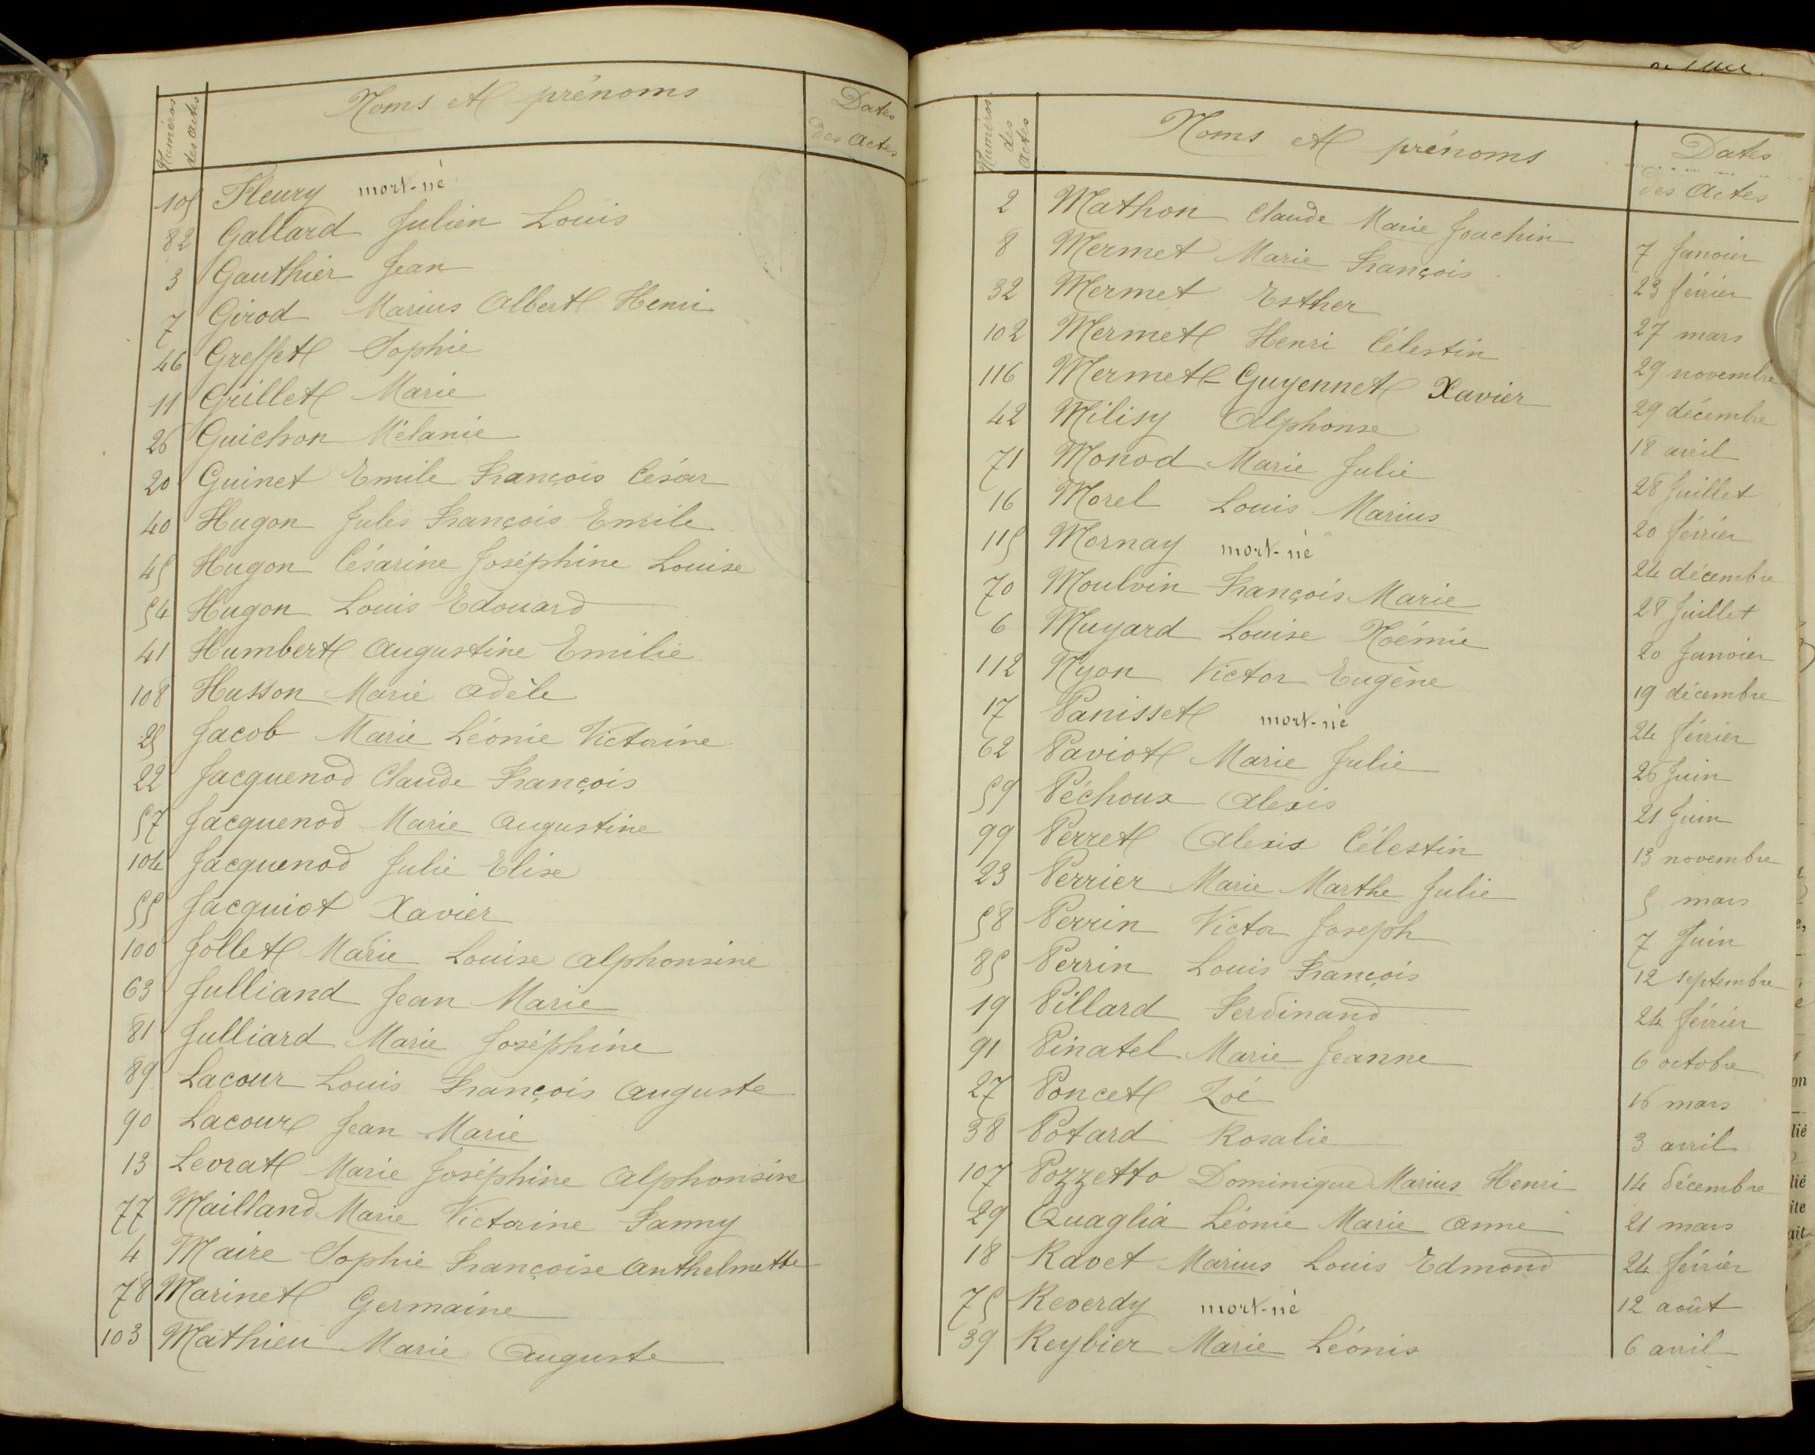 Numéros des actes Noms et prénoms Dates des actes
105 Fleury mort-né
82 Gallard Julien Louis
3 Gauthier Jean
7 Girod Marius Albert Henri
46 Greffet Sophie
11 Grillet Marie
26 Guichon Mélanie
20 Guinet Emile François César
40 Hugon Jules François Emile
45 Hugon Césarine Joséphine Louise
54 Hugon Louis Edouard
41 Humbert Augustine Emilie
108 Husson Marie Adèle
25 Jacob Marie Léonie Victorine
22 Jacquenod Claude François
57 Jacquenod Marie Augustine
104 Jacquenod Julie Elise
55 Jacquiot Xavier
100 Jollet Marie Louise Alphonsine
63 Julliand Jean Marie
81 Julliard Marie Joséphine
89 Lacour Louis François Auguste
90 Lacour Jean Marie
13 Levrat Marie Joséphine Alphonsine
77 Mailland Marie Victorine Fanny
4 Maire Sophie Françoise Anthelmette
78 Marinet Germaine
103 Mathieu Marie Auguste
Numéros des actes Noms et prénoms Dates des actes
2 Mathon Claude Marie Joachin 7 Janvier
8 Mermet Marie François 23 février
32 Mermet Esther 27 mars
102 Mermet Henri Célestin 29 novembre
116 Mermet-Guyennet Xavier 29 décembre
42 Milisy Alphonse 18 avril
71 Monod Marie Julie 28 Juillet
16 Morel Louis Marius 20 février
115 Mornay mort-né 24 décembre
70 Moulvin François Marie 28 Juillet
6 Muyard Louise Noémie 20 Janvier
112 Nyon Victor Eugène 19 décembre
17 Panisset mort-né 24 février
62 Paviot Marie Julie 26 Juin
59 Péchoux Alexis 21 Juin
99 Perret Alexis Célestin 13 novembre
23 Perrier Marie Marthe Julie 5 mars
58 Perrin Victor Joseph 7 Juin
85 Perrin Louis François 12 septembre
19 Pillard Ferdinand 24 février
91 Pinatel Marie Jeanne 6 octobre
27 Poncet Zoé 16 mars
38 Potard Rosalie 3 avril
107 Pozzetto Dominique Marius Henri 14 décembre
29 Quaglia Léonie Marie Anne 21 mars
18 Ravet Marius Louis Edmond 24 février
75 Reverdy mort-né 12 août
39 Reybier Marie Léonis 6 avril